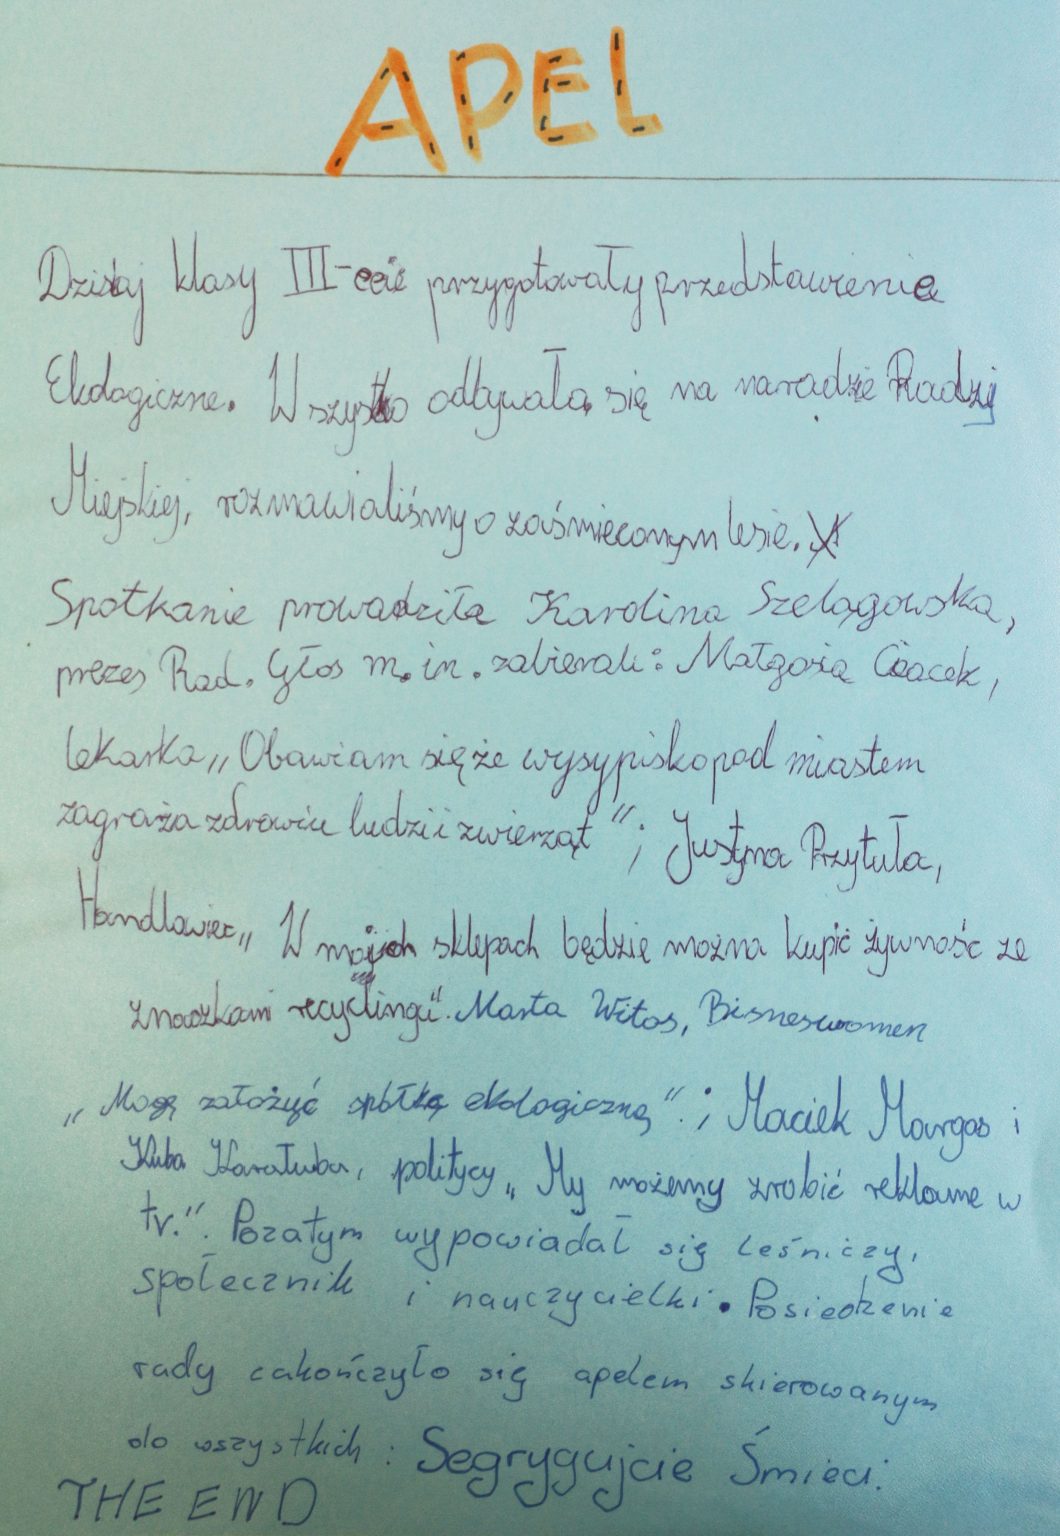 APEL
Dzisiaj klasy III-ecie przygotowały przedstawienie
Ekologiczne. Wszystko odbywała się na naradzie Radzij
Miejskiej, rozmawialiśmy o zaśmieconym lesie.
Spotkanie prowadziła Karolina Szelągowska,
prezes Rad. Głos m. in. zabierali: Małgosia Ciacek,
lekarka „Obawiam się że wysypisko pod miastem
zagraża zdrowiu ludzi i zwierząt"; Justyna Przytuła,
Handlowiec „W moich sklepach będzie można kupić żywność ze
znaczkami recyclingu". Marta Witos, Bisneswomen
„Mogę założyć spółkę ekologiczną".; Maciek Margas i
Kuba Karałuba, politycy „My możemy zrobić reklame w
tv.". Pozatym wypowiadał się leśniczy,
społecznik i nauczycielki. Posiedzenie
rady zakończyło się apelem skierowanym
do wszystkich: Segrygujcie Śmieci:
THE END